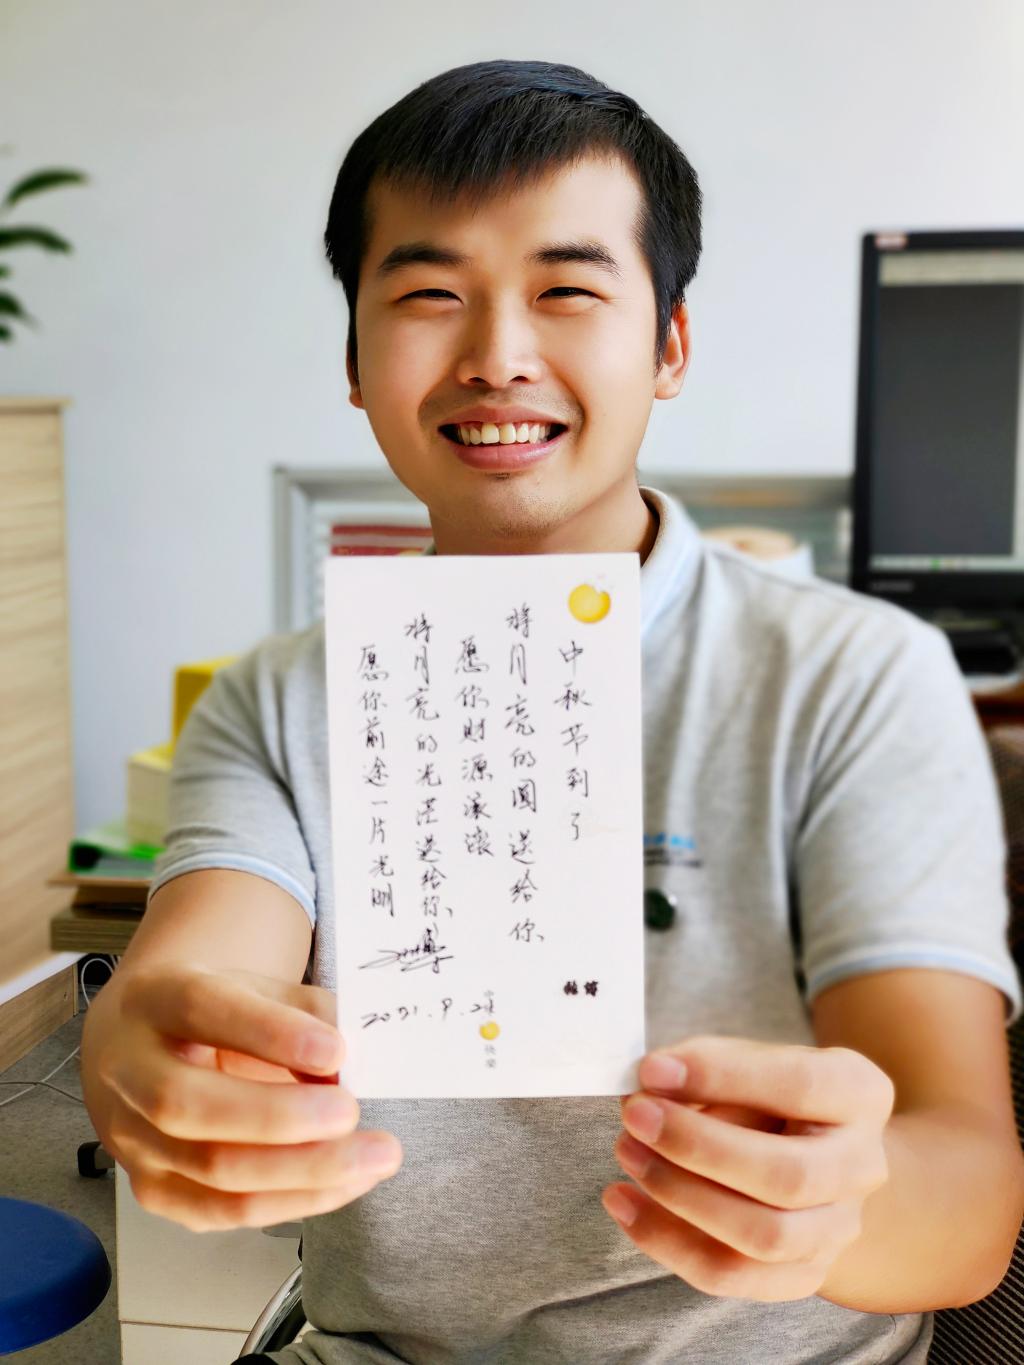 中秋节到了
将月亮的圆送给你、
愿你财源滚滚
将月亮的光茫送给你、
愿你前途一片光明
中秋
快樂